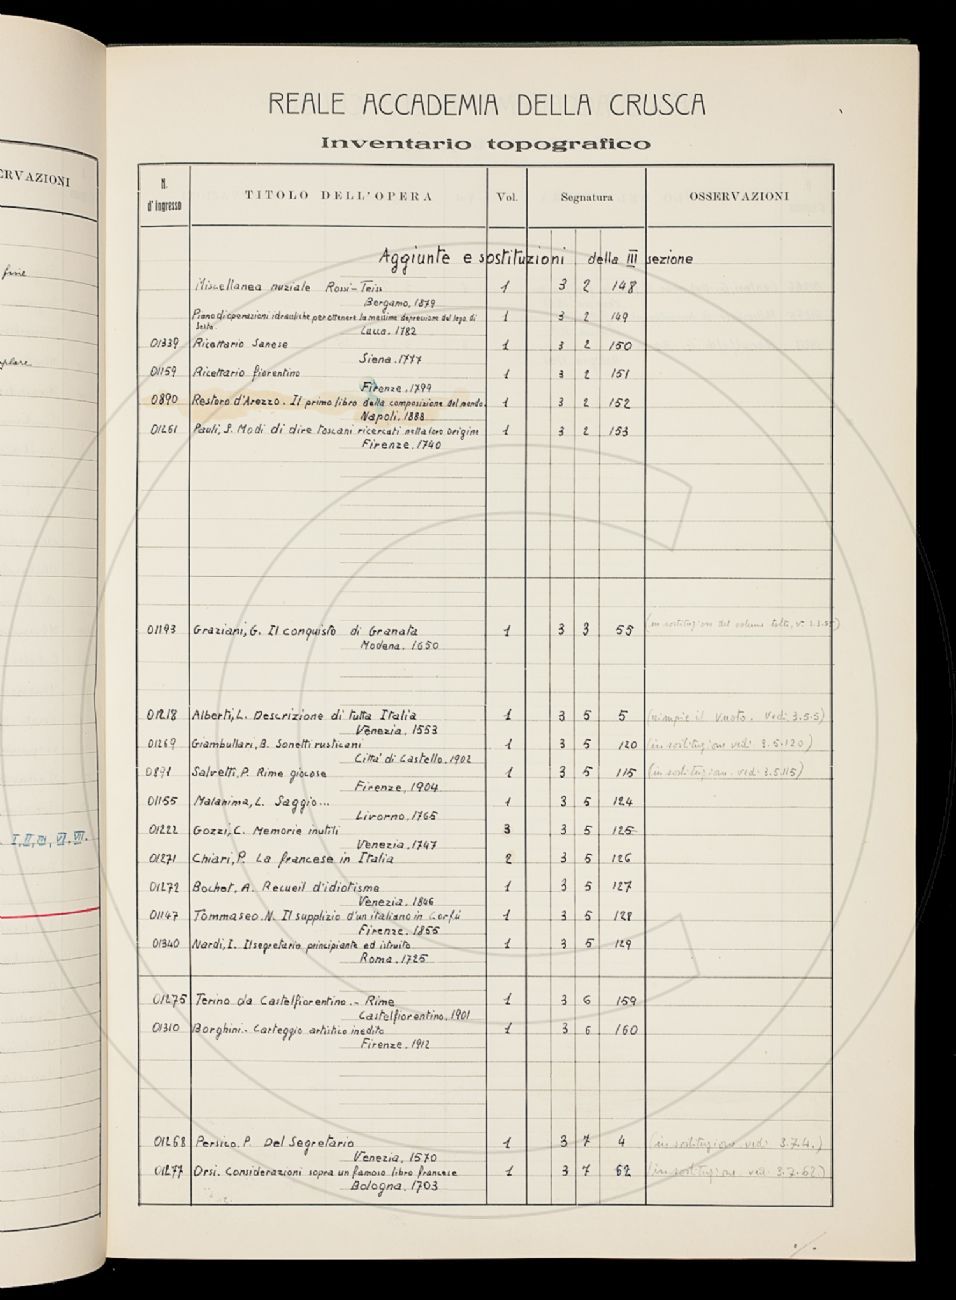 ERVAZIONI
fine
I, II, III, VI. VII.
REALE ACCADEMIA DELLA CRUSCA
Inventario topografico
N. d'ingresso TITOLO DELL'OPERA Vol. Segnatura OSSERVAZIONI
Aggiunte e sostituzioni della III sezione
Miscellanea nuziale Rossi-Teiss 1 3 2 148
Bergamo, 1879
Piano di operazioni idrauliche per ottenere la massima depressione del lago di 1 3 2 149
Sesto. Lucca. 1782
01339 Ricettario Sanese 1 3 2 150
Siena. 1777
01159 Ricettario fiorentino 1 3 2 151
Firenze. 1799
0890 Restoro d'Arezzo. Il primo libro della composizione del mondo. 1 3 2 152
Napoli. 1888
01261 Pauli, S. Modi di dire toscani ricercati nella loro origine 1 3 2 153
Firenze. 1740
01193 Graziani, G. Il conquisto di Granata 1 3 3 55 (in sostituzione del volume tolto, v. 3.3.55)
Modena. 1650
01218 Alberti, L. Descrizione di tutta Italia 1 3 5 5 (riempie il vuoto. Vedi 3.5.5)
Venezia, 1553
01269 Giambullari, B. Sonetti rusticani 1 3 5 120 (in sostituzione vedi 3.5.120)
Città di Castello, 1902
0891 Salvetti, P. Rime giocose 1 3 5 115 (in sostituzion. vedi 3.5.115)
Firenze, 1904
01155 Malanima, L. Saggio... 1 3 5 124
Livorno, 1765
01222 Gozzi, C. Memorie inutili 3 3 5 125
Venezia, 1747
01271 Chiari, P. La francese in Italia 2 3 5 126
01272 Bochet, A. Recueil d'idiotisme 1 3 5 127
Venezia. 1846
01147 Tommaseo. N. Il supplizio d'un italiano in Corfù 1 3 5 128
Firenze. 1855
01340 Nardi, I. Il segretario principiante ed istruito 1 3 5 129
Roma. 1725
01275 Terino da Castelfiorentino.- Rime 1 3 6 159
Castelfiorentino, 1901
01310 Borghini.- Carteggio artistico inedito 1 3 6 160
Firenze. 1912
01268 Persico. P. Del Segretario 1 3 7 4 (in sostituzione vedi 3.7.4.)
Venezia, 1570
01277 Orsi. Considerazioni sopra un famoso libro francese 1 3 7 62 (in sostituzione. vedi 3.7.62)
Bologna. 1703